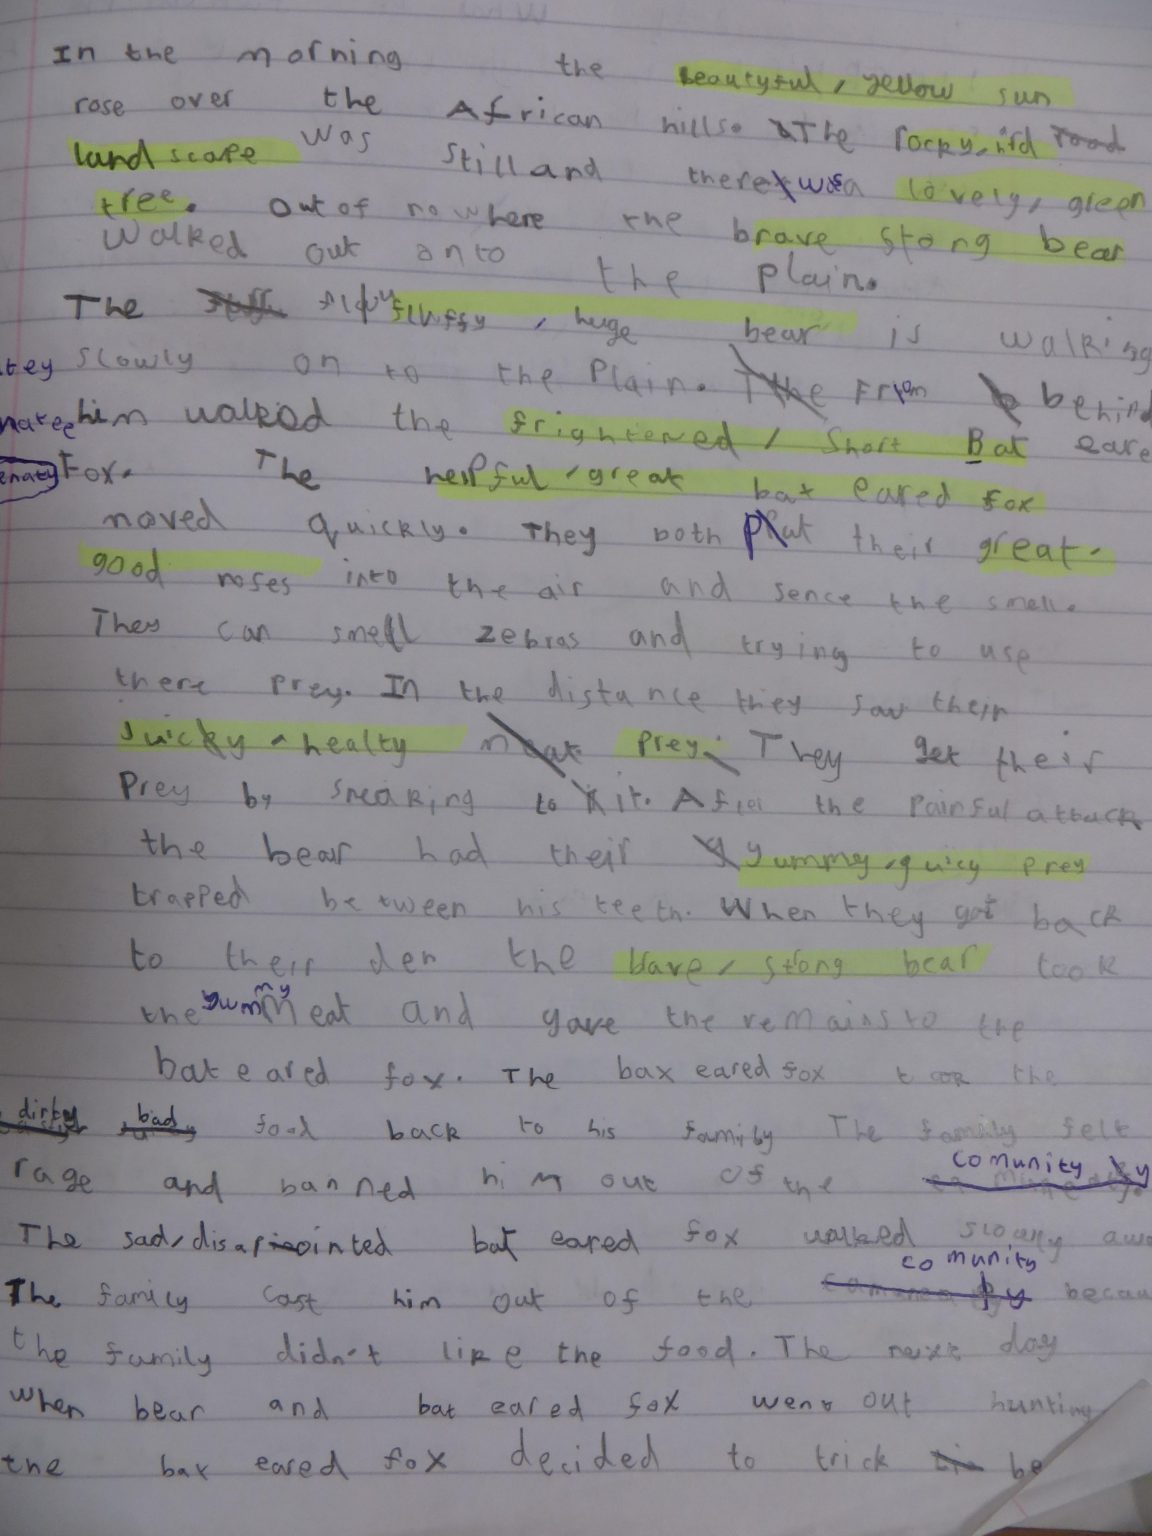 In the morning the beautyful, yellow sun
rose over the African hills. The rocky, road
landscape was still and there was a lovely, green
tree. Out of nowhere the brave stong bear
walked out onto the plain.
The fluffy, huge bear is walking
slowly on to the Plain. From behind
him walked the frightened, short Bat eare
Fox. The helpful, great bat eared fox
moved quickly. They both put their great,
good noses into the air and sence the smell.
They can smell zebras and trying to use
there prey. In the distance they saw their
juicky, healty prey. They get their
Prey by sneaking to it. After the painful attack
the bear had their yummy, quicy prey
trapped between his teeth. When they got back
to their den the brave, stong bear took
the yummy meat and gave the remains to the
bat eared fox. The bat eared fox took the
dirty bad food back to his family The family felt
rage and banned him out of the comunity
The sad, disapointed bat eared fox walked slowly awa
The family cast him out of the comunity becau
the family didn't like the food. The next day
when bear and bat eared fox went out hunting
the bat eared fox decided to trick be